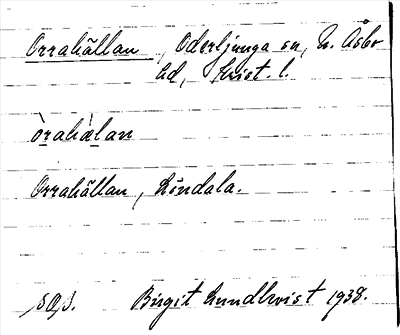 Orrahällan, Oderljunga sn, N. Åsbo
hd, Krist. l.
òrahàlan
Orrahällan, Löndala.
Birgit Lundkvist 1938.